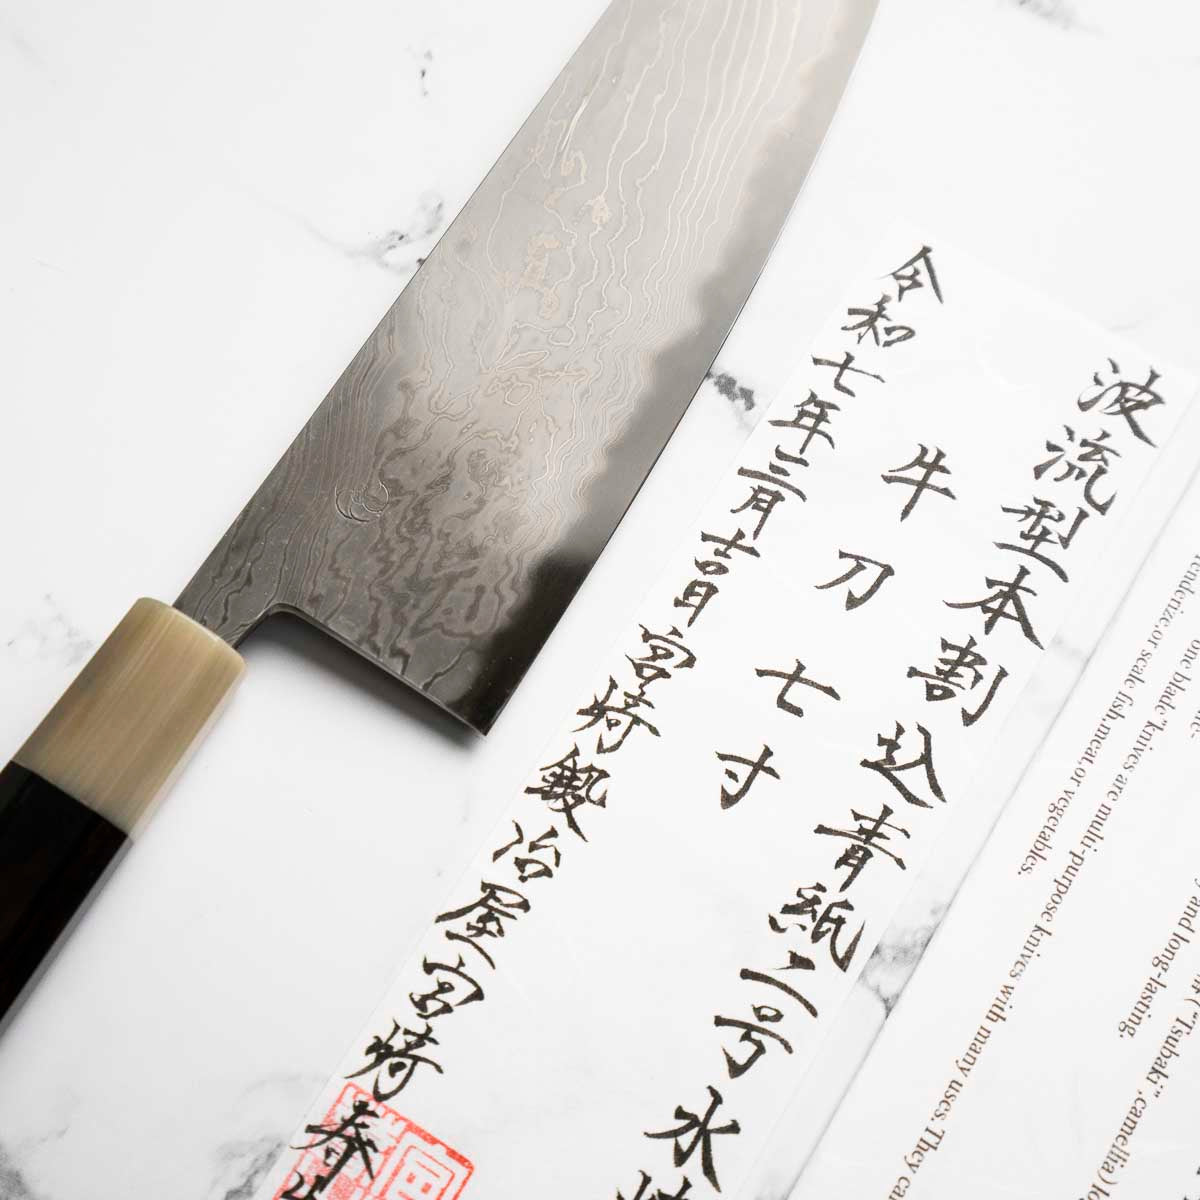 波流型本割込青紙二号水
牛刀七寸
令和七年三月吉日宮﨑鍛冶屋宮﨑春
one blade"knives are multi-purpose knives with many uses. They
or scale fish,meat,or vegetables.
and long-lasting.
("Tsubaki",camellia)